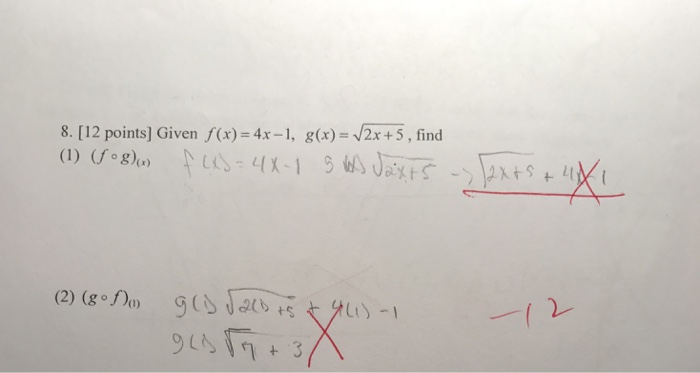 8. [12 points] Given f(x) = 4x − 1, g(x) = √2x + 5, find
(1) (f ∘ g)(x) f(x) = 4x - 1 g(x) √2x+5 -> √2x+5 + 4x - 1
(2) (g ∘ f)(1) g(1) √2(1) +5 + 4(1) - 1
-12
g(1) √7 + 3